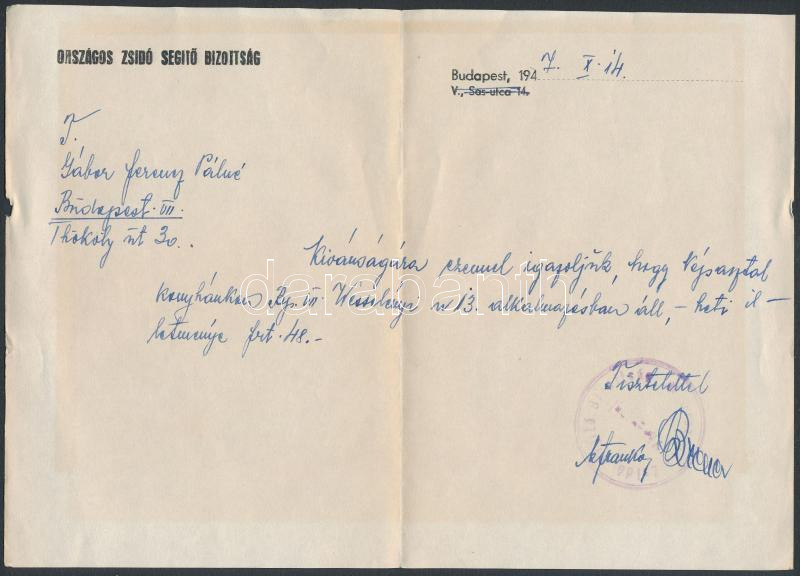 ORSZÁGOS ZSIDÓ SEGITŐ BIZOTTSÁG
Budapest, 1947. X. 14.
V., Sas-utca 14.
T.
Gábor Ferencz Pálné
Budapest. VII.
Thököly út 30..
Kívánságára ezennel igazoljuk, hogy Népasztal
konyhánkon Bp. VII. Wesselényi u 13. alkalmazásban áll, - heti il-
letménye frt. 48.-
Tisztelettel
darabanth